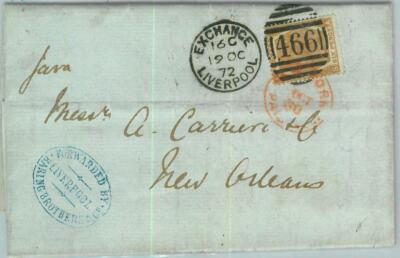 EXCHANGE
16 C
19 OC
72
LIVERPOOL
466
Java
Messrs A. Carriere & Co
New Orleans
FORWARDED BY
LIVERPOOL
BARING BROTHERS & Co
YORK
OCT
30
PA